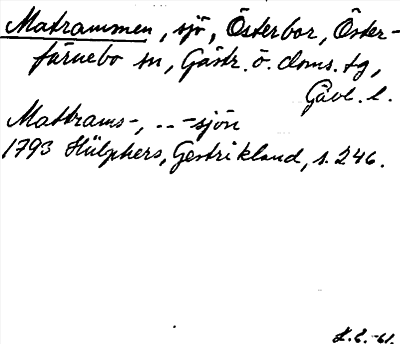 Matrammen, sjö, Österbor, Öster-
färnebo sn, Gästr. ö. doms. tg,
Gävl. l.
Mattrams-, ..-sjön
1793 Hülphers, Gestrikland, s. 246.
L.E.-61.